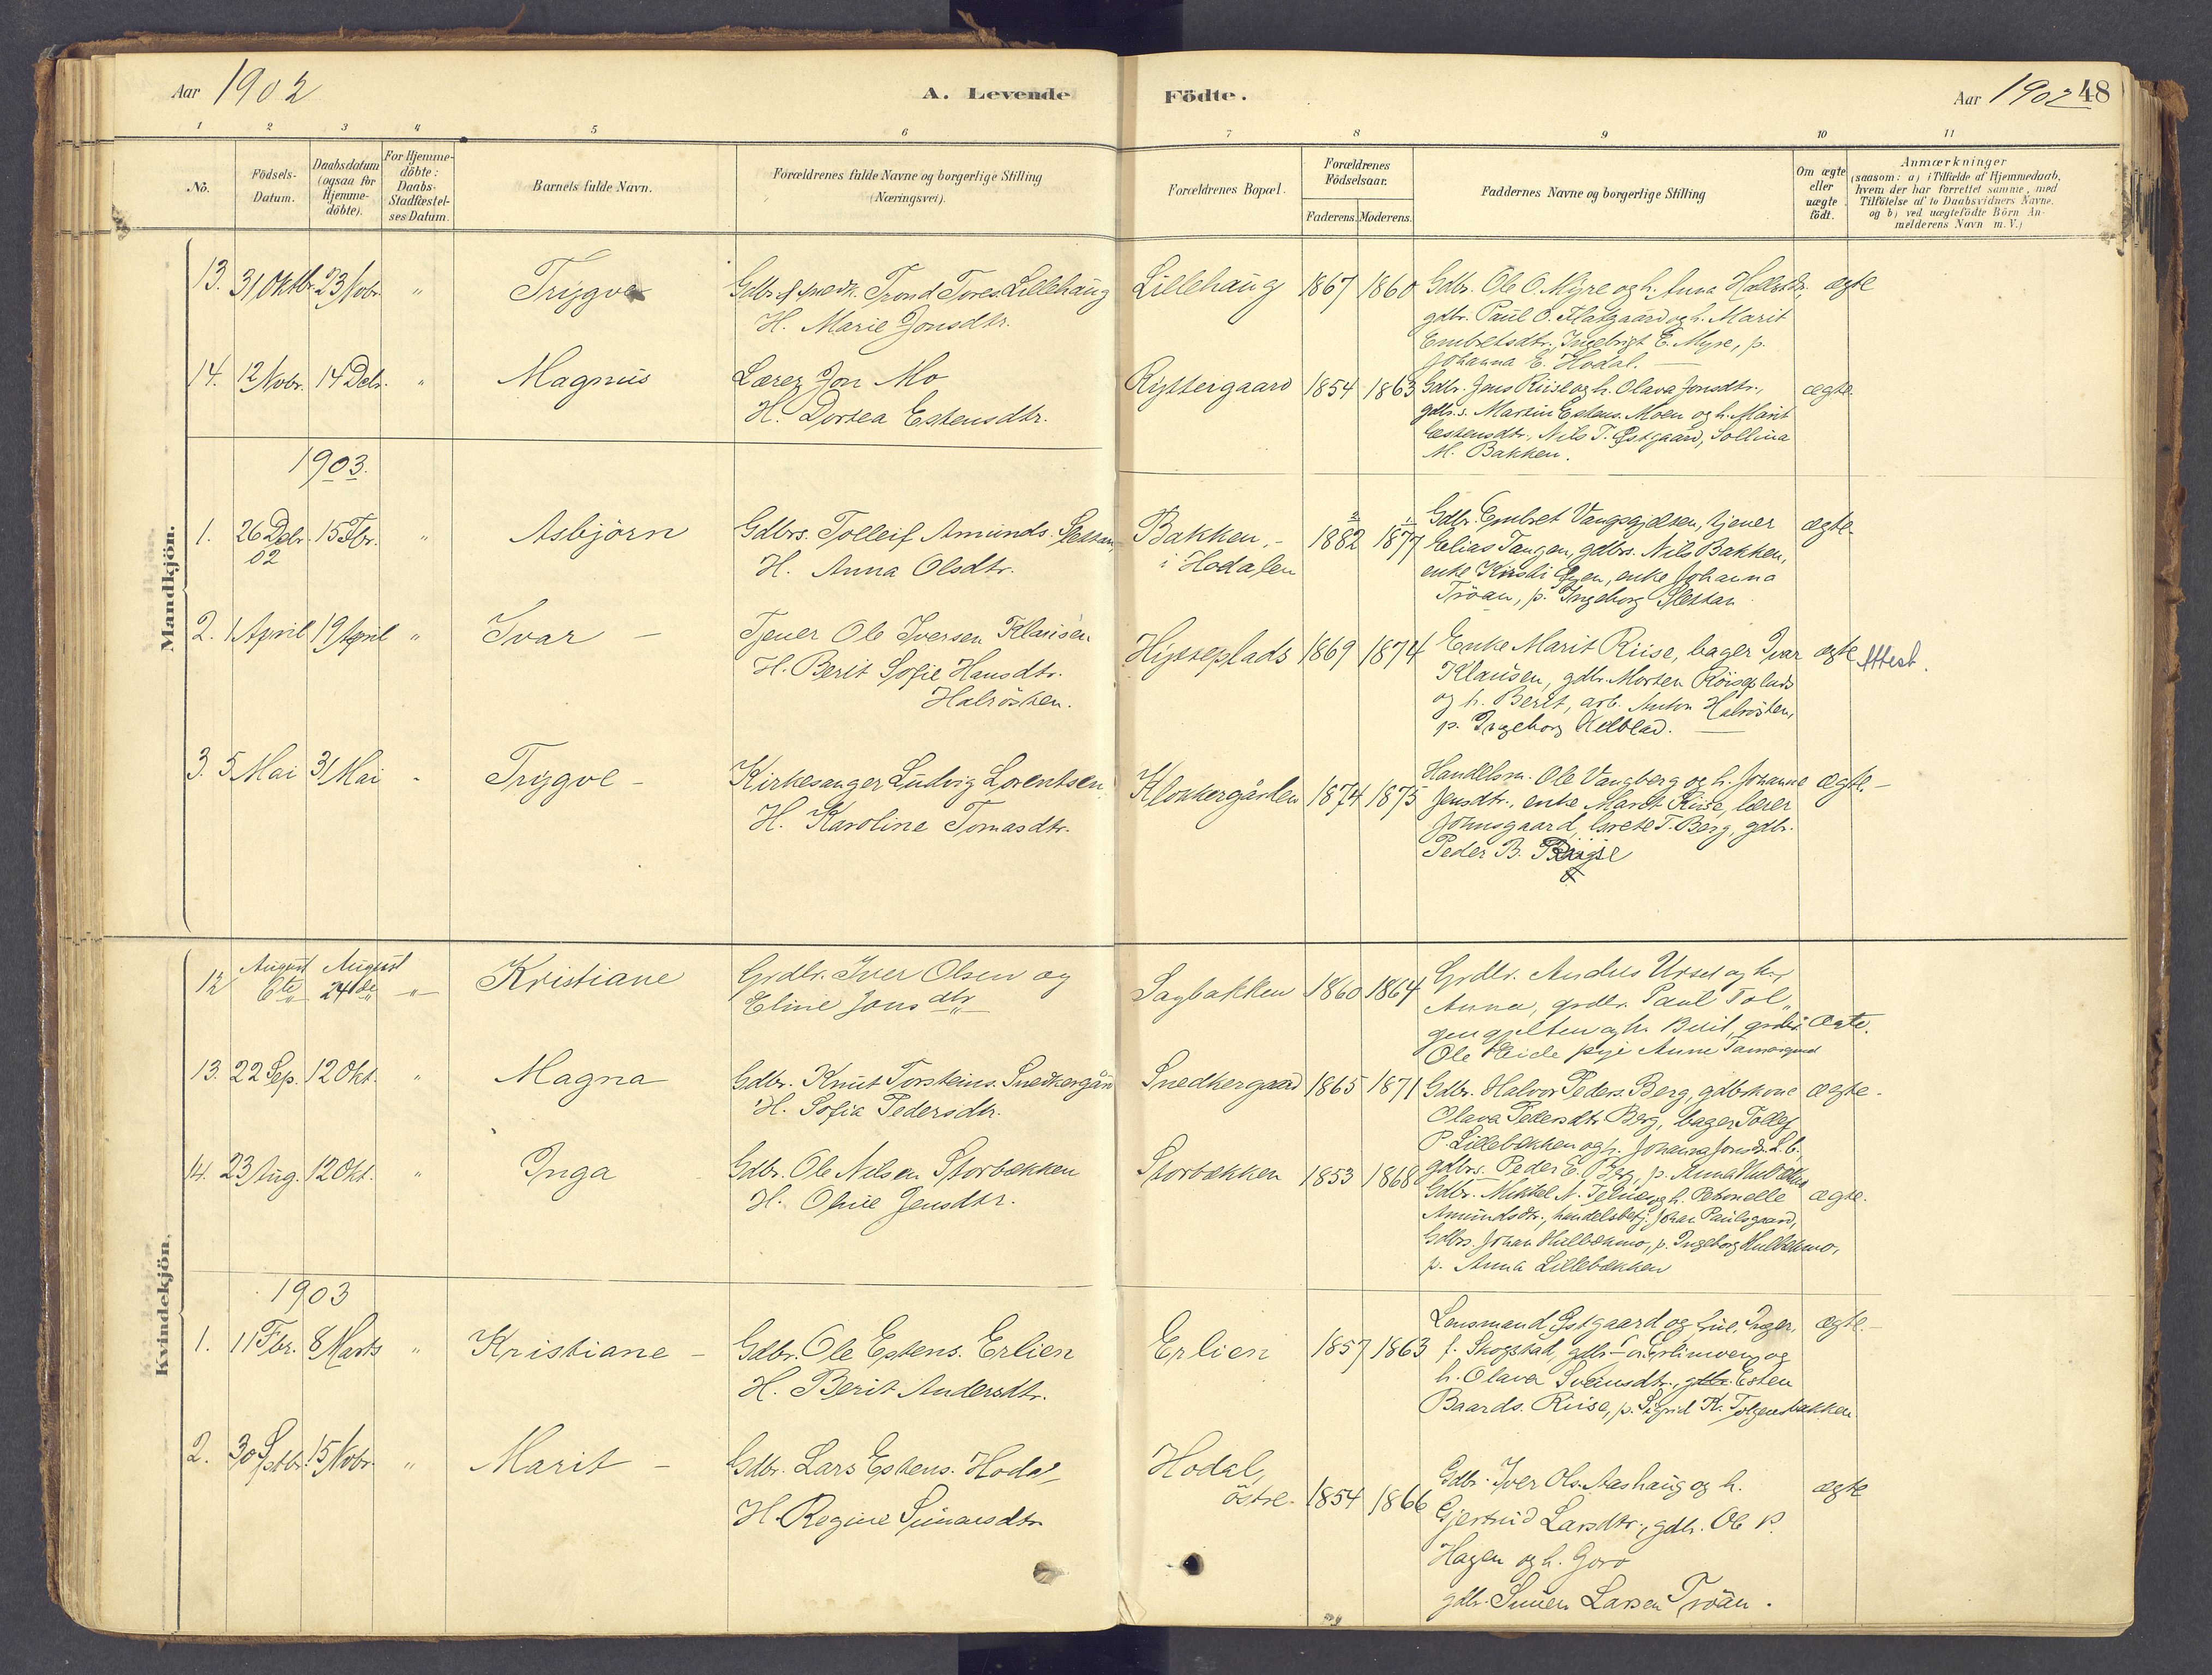 Aar 1902
A. Levende Födte.
Aar 1902 48
1 2 3 4 5 6 7 8 9 10 11
No.
Födsels-Datum.
Daabsdatum (ogsaa for Hjemme-döbte).
For Hjemme-döbte: Daabs-Stadfæstel-ses Datum.
Barnets fulde Navn.
Forældrenes fulde Navne og borgerlige Stilling (Næringsvei).
Forældrenes Bopæl.
Forældrenes Födselsaar.
Faderens. Moderens.
Faddernes Navne og borgerlige Stilling
Om ægte eller uægte födt.
Anmærkninger
(saasom: a) i Tilfælde af Hjemmedaab,
hvem der har forrettet samme, med
Tilföielse af to Daabsvidners Navne.
og b) ved uægtefödte Börn An-
melderens Navn m. V.)
Mandkjön.
13. 31 Oktbr. 23 Novbr. " Trygve
Gdbr. Trond Tores. Lillehaug
H. Marie Jonsdtr.
Lillehaug 1867 1860
Gdbr. Ole O. Myre og h. Anna
gdbr. Paul O. og h. Marit
Embretsdtr., Ingebrigt E. Myre, p.
Johanna E. Hodal.
ægte
14. 12 Novbr. 14 Debr. " Magnus
Lærer Jon Mo
H. Dortea Estensdtr.
Ryttergaard 1854 1863
Gdbr. Jens Riise og h. Olava Jonsdtr.,
gdbr.s. Martin Estens. Moen og h. Marit
Estensdtr., Nils T. Østgaard, Sollina
M. Bakken.
ægte.
1903.
1. 26 Debr. 02 15 Fbr. " Asbjörn
Gdbrs. Tolleif Amunds. Slettan,
H. Anna Olsdtr.
Bakken,
i Hodalen
1882 1877
Gdbr. Embret Vangsgjelten, tjener
Elias Tangen, gdbrs. Nils Bakken,
enke Kirsti, enke Johanna
Tröan, p. Ingeborg Slettan
ægte.
2. 1 April 19 April " Ivar
Tjener Ole Iversen Klausen
H. Berit Sofie Hansdtr.
Halrösten.
Hytteplads 1869 1874
Enke Marit Riise, bager Ivar
Klausen, gdbr. Morten
og h. Berit, arb. Anton Halrösten,
p. Ingeborg
ægte Attest.
3. 5 Mai 31 Mai - Trygve
Kirkesanger Ludvig Lorentsen
H. Karoline Tomasdtr.
Klokkergården 1874 1875
Handelsm. Ole Vangberg og h. Johanne
Jensdtr., enke Marit Riise, lærer
Johnsgaard, Grete T. Berg, gdbr.
Peder B. Riise
ægte.
Kvindekjön.
12 August 6te August 24de " Kristiane
Grdbr. Iver Olsen og
Eline Jonsdtr
Sagbakken 1860 1864
Grdbr. Anders Urset og h.
Anna, grdbr. Paul Tol-
gengjelten og h. Berit, grdbr.
Ole Eide pige Anne
ægte.
13. 22 Sep. 12 Okt. " Magna
Gdbr. Knut Torsteins. Snedkergård
H. Sofia Pedersdtr.
Snedkergaard 1865 1871
Gdbr. Halvor Peders. Berg, gdbrkone
Olava Pedersdtr Berg, bager Tollef
P. Lillebækken og h. Johanna Jonsdtr. L.b.
gdbrs. Peder E. Berg, p. Anna
ægte.
14. 23 Aug. 12 Okt. " Inga
Gdbr. Ole Nilsen Storbækken
H. Oline Jensdtr.
Storbækken 1853 1868
Gdbr. Mikkel N. og h. Petronelle
Amundsdtr., handelsbetj. Johan Paulsgaard,
Gdbrs. Johan Hulbækmo, p. Ingeborg Hulbækmo,
p. Anna Lillebækken
ægte.
1903
1. 11 Fbr. 8 Marts " Kristiane
Gdbr. Ole Estens. Erlien
H. Berit Andersdtr.
Erlien 1857 1863
Lensmand Østgaard og fru Inger,
f. Skogstad, gdbr. og
h. Olava Svensdtr., gdbr. Esten
Baards. Riise, p. Sigrid K. Tolgensbakken
ægte.
2. 30 Sptbr. 15 Novbr. " Marit
Gdbr. Lars Estens. Hodal
H. Regine Simensdtr
Hodal,
östre.
1854 1866
Gdbr. Iver Ols. Aashaug og h.
Gjertrud Larsdtr., gdbr. Ole P.
Hagen og h. Goro
gdbr. Simen Larsen Tröan.
ægte